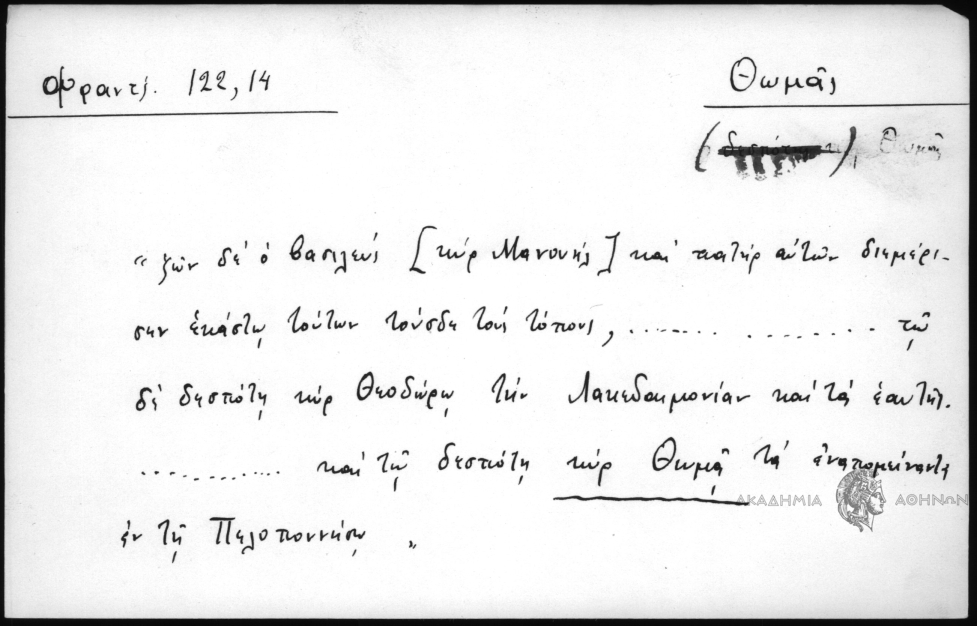 Φραντζ. 122,14
Θωμᾶς
(δεσπότης), Θωμᾶς
"ζῶν δέ ὁ βασιλεύς [κύρ Μανουήλ] καί πατήρ αὐτῶν διεμέρι-
σεν ἑκάστῳ τούτων τούσδε τούς τόπους, ....... ......... τῷ
δέ δεσπότῃ κύρ Θεοδώρῳ τήν Λακεδαιμονίαν καί τά ἑαυτῆς.
............ καί τῷ δεσπότῃ κύρ Θωμᾷ τά ἐναπομείναντα
ἐν τῇ Πελοποννήσῳ "
ΑΚΑΔΗΜΙΑ ΑΘΗΝΩΝ